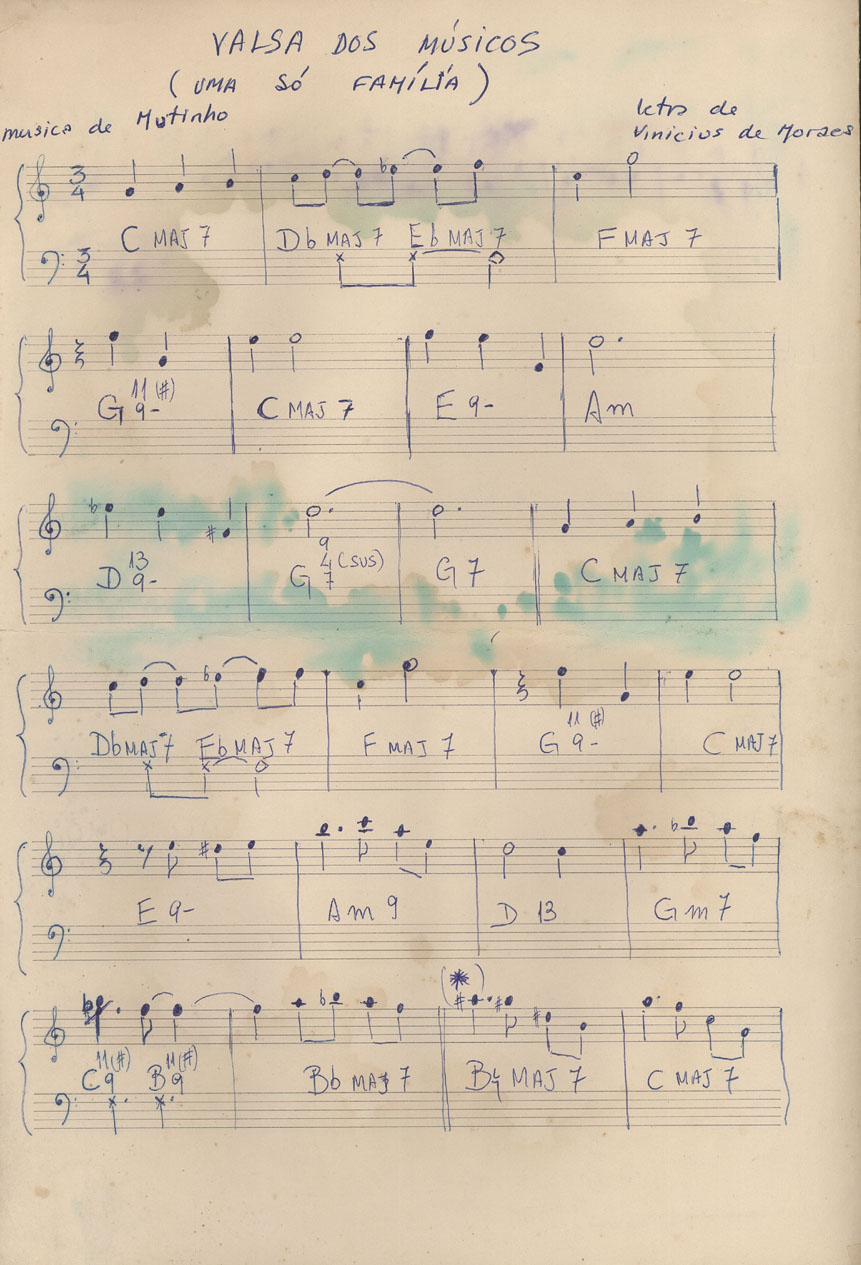 VALSA DOS MÚSICOS
(UMA SÓ FAMÍLIA)
musica de Mutinho
letra de
Vinicius de Moraes
3 4
C MAJ 7 Db MAJ 7 Eb MAJ 7 F MAJ 7
3 4
G 11(#) 9- C MAJ 7 E 9- Am
D 13 9- G 9 4(SUS) 7 G 7 C MAJ 7
Db MAJ 7 Eb MAJ 7 F MAJ 7 G 11(#) 9- C MAJ 7
E 9- Am 9 D 13 Gm 7
(*)
C 11(#) 9 B 11(#) 9 Bb MAJ 7 B♮ MAJ 7 C MAJ 7